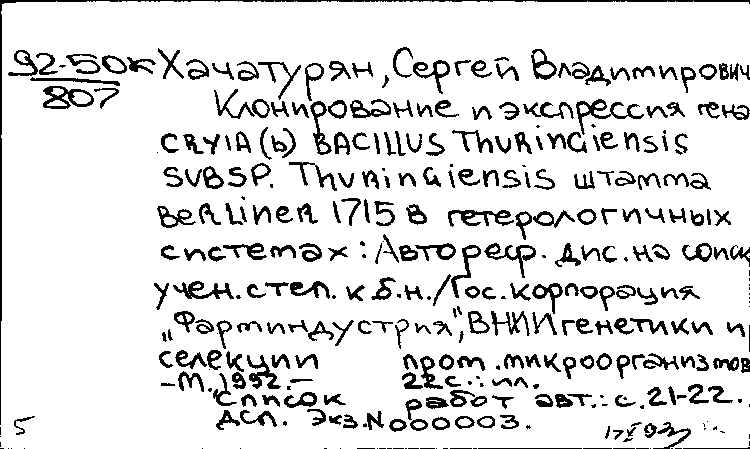 92-50к Хачатурян, Сергей Владимирович
807 Клонирование и экспрессия гена
CRYIA(b) BACILLUS ThuRinGiensis
SUBSP. ThuRinGiensis штамма
BeRLineR 1715 в гетерологичных
системах : Автореф. дис. на соиск
учен. степ. к.б.н. / Гос. корпорация
„Фарминдустрия”, ВНИИ генетики и
селекции пром. микроорганизмов
–М., 1992. – 22 с. : ил.
Список работ авт.: с. 21-22.
ДСП. Экз. N 000003.
5